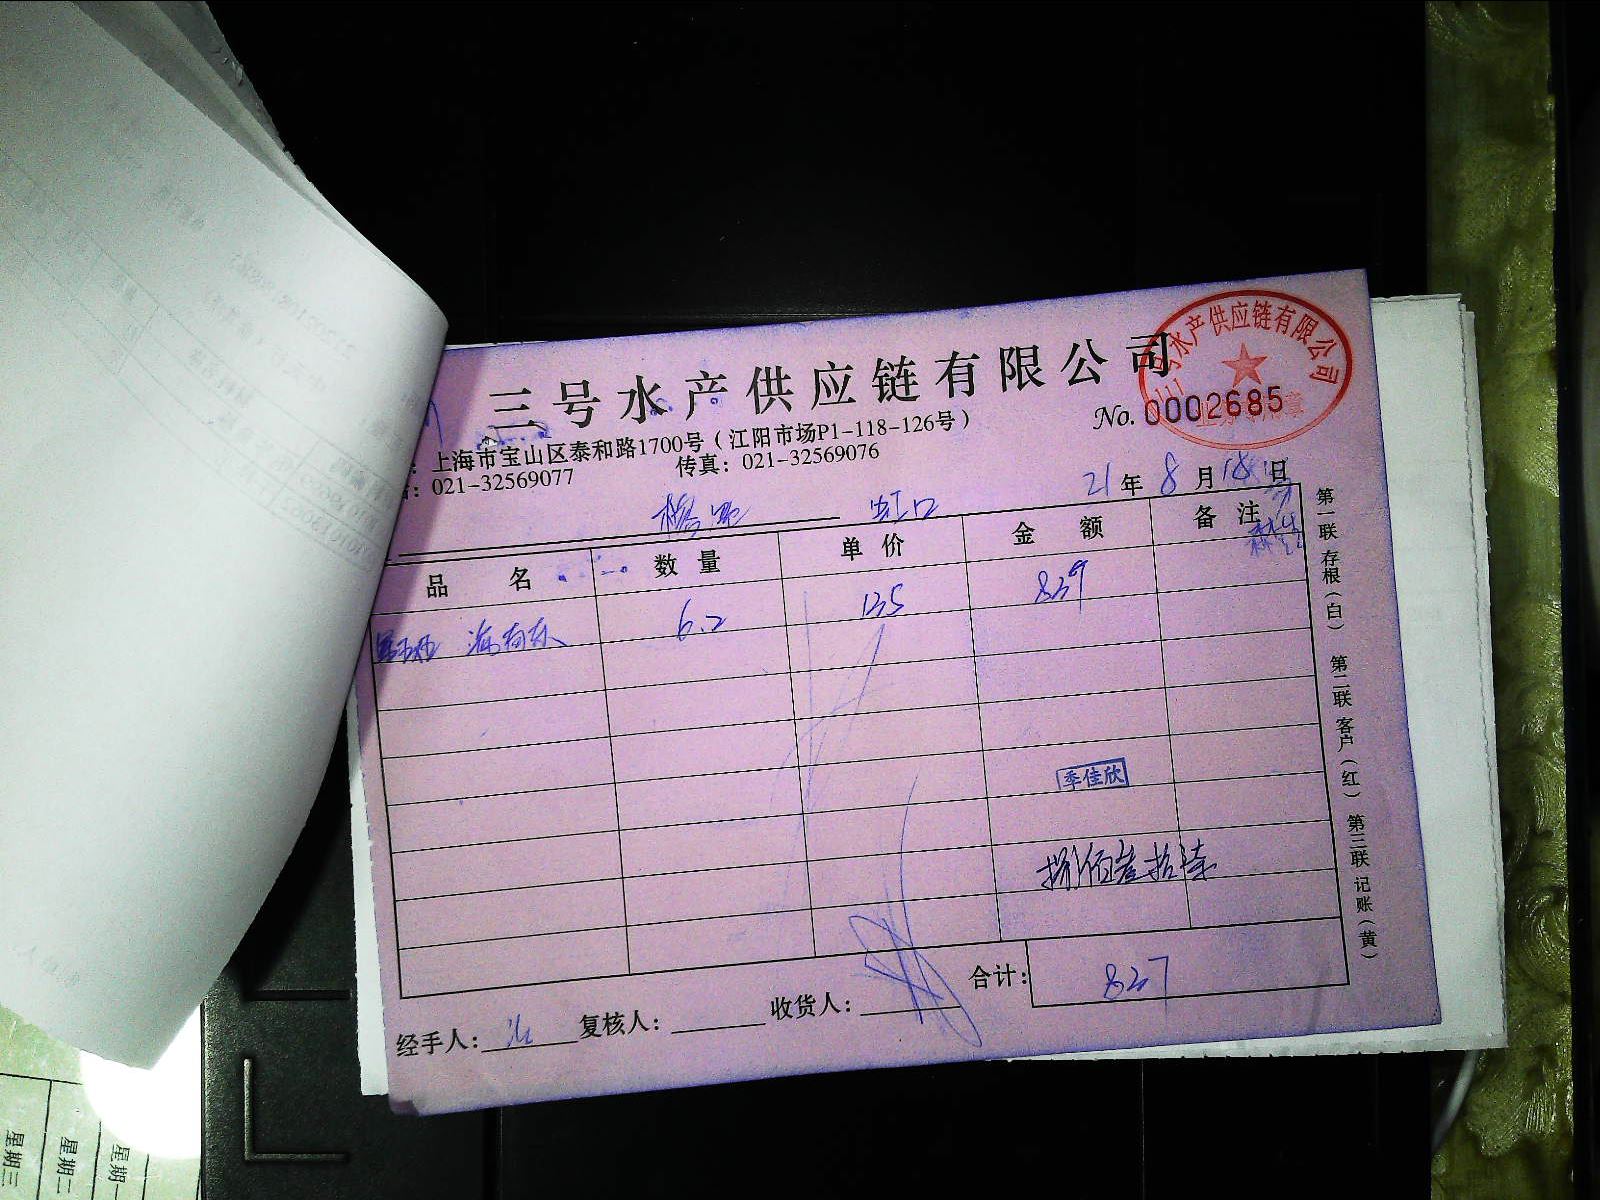 三号水产供应链有限公司
三号水产供应链有限公司
No. 0002685
：上海市宝山区泰和路1700号（江阳市场P1-118-126号）
：021-32569077 传真：021-32569076
21年8月18日
虹口
品名 数量 单价 金额 备注
6.2 135 837
季佳欣
捌佰叁拾柒
合计： 837
经手人： 复核人： 收货人：
第一联 存根（白） 第二联 客户（红） 第三联 记账（黄）
星期一
星期二
星期三